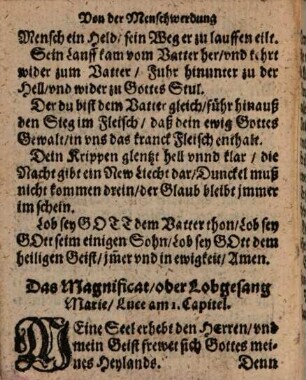 Von der Menschwerdung
Mensch ein Held/ sein Weg er zu lauffen eilt.
Sein Lauff kam vom Vatter her/ vnd kehrt
wider zum Vatter/ Fuhr hinunter zu der
Hell/ vnd wider zu Gottes Stul.
Der du bist dem Vatter gleich/ führ hinauß
den Sieg im Fleisch/ daß dein ewig Gottes
Gewalt/ in vns das kranck Fleisch enthalt.
Dein Krippen glentzt hell vnnd klar/ die
Nacht gibt ein New Liecht dar/ Dunckel muß
nicht kommen drein/ der Glaub bleibt jmmer
im schein.
Lob sey GOTT dem Vatter thon/ Lob sey
GOtt seim einigen Sohn/ Lob sey GOtt dem
heiligen Geist/ jm̃er vnd in ewigkeit/ Amen.
Das Magnificat/ oder Lobgesang
Marie/ Luce am 1. Capitel.
MEine Seel erhebt den HErren/ vnd
mein Geist frewet sich Gottes mei-
nes Heylands.
Denn